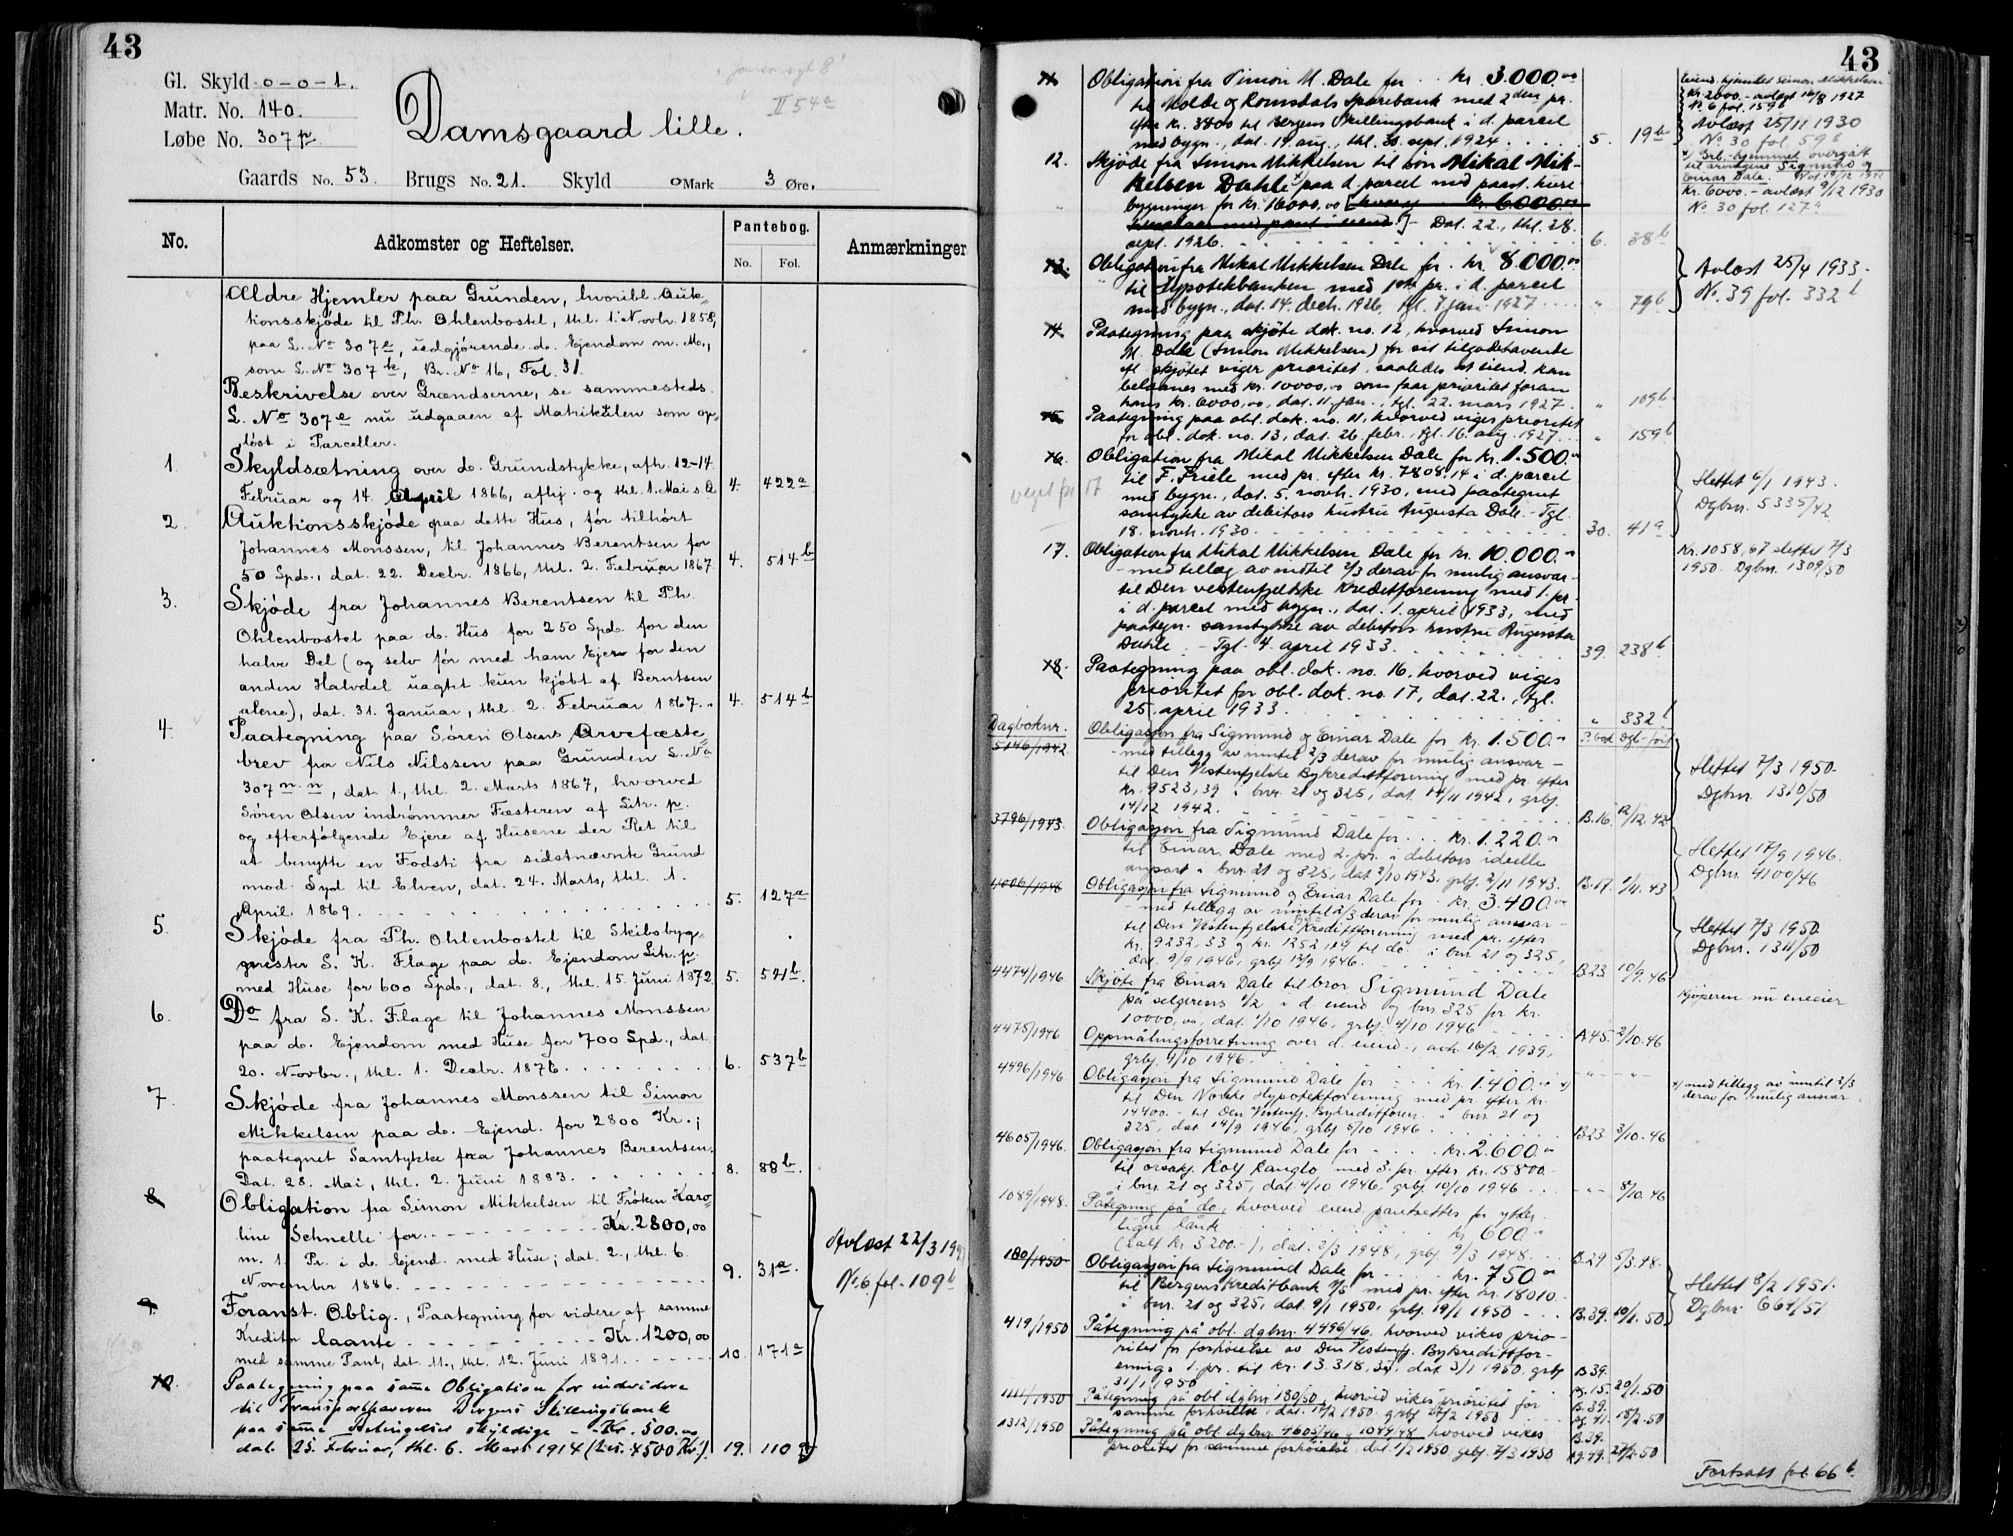 43
Gl. Skyld 0-0-1.
Matr. No. 140.
Løbe No. 307 p.
II 54 a
Damsgaard lille.
Gaards No. 53. Brugs No. 21. Skyld 0 Mark 3 Øre.
No.
Adkomster og Heftelser.
Pantebog.
No. Fol.
Anmærkninger
Ældre Hjemler paa Grunden, hvoribl. Auk-
tionsskjøde til Ph. Ohlenbostel, thl. 1. Novbr. 1858,
paa L. No 307 e, udgjørende d. Ejendom m. M.,
som L. No 307 k, Br. No 16, Fol. 31.
Beskrivelse over Grændserne, se sammesteds.
L. No 307 e nu udgaaen af Matrikülen som op-
løst i Parceller.
1. Skyldsætning over d. Grundstykke, afh. 12-14
Februar og 14. April 1866, afhj. og thl. 1. Mai s. A 4. 422 a
2. Auktionsskjøde paa dette Hus, før tilhørt
Johannes Monssen, til Johannes Berentsen for
50 Spd., dat. 22. Decbr. 1866, thl. 2. Februar 1867 4. 514 b
3. Skjøde fra Johannes Berentsen til Ph.
Ohlenbostel paa d. Hus for 250 Spd. for den
halve Del (og selv før med ham Ejer for den
anden Halvdel uagtet kun kjøbt af Berntsen
alene), dat. 31. Januar, thl. 2. Februar 1867. 4. 514 b
4. Paategning paa Søren Olsens Arvefæste-
brev fra Nils Nilssen paa Grunden L. No
307 m. n, dat. 1., thl. 2. Marts 1867, hvorved
Søren Olsen indrømmer Fæsteren af Litr. p.
og efterfølgende Ejere af Husene der Ret til
at benytte en Fodsti fra sidstnævnte Grund
mod Syd til Elven, dat. 24. Marts, thl. 1.
April 1869. 5. 127 a
5. Skjøde fra Ph. Ohlenbostel til Skibsbyg-
mester S. K. Flage paa d. Ejendom Litr. p.
med Huse for 600 Spd., dat. 8., thl. 15. Juni 1872 5. 521 b.
6. Do fra S. K. Flage til Johannes Monssen
paa d. Ejendom med Huse for 700 Spd., dat.
20. Novbr., thl. 1. Decbr. 1876. 6. 537 b
7. Skjøde fra Johannes Monssen til Simon
Mikkelsen paa d. Ejend. for 2800 Kr.;
paategnet Samtykke fra Johannes Berentsen.
Dat. 28. Mai, thl. 2. Juni 1883. 8. 88 b.
8. Obligation fra Simon Mikkelsen til Frøken Karo-
line Schnelle for Kr. 2800,00
m. 1. Pr. i d. Ejend. med Huse; dat. 2., thl. 6.
November 1886. 9. 31 a.
Avlæst 22/3 192
No. 6 fol. 109 b
9. Foranst. Oblig., Paategning for videre af samme
Kreditor laante Kr. 1200,00
med samme Pant, dat. 11., thl. 12. Juni 1891. 10. 171 a
10. Paategning paa same Obligation for indvidere
til Transporthaveren Bergens Skillingsbank
paa same Betingelser skyldige Kr. 500.00
dat. 25. Februar, thl. 6. Mars 1914 (tils. 4500 Kr.). 19. 110
43
11. Obligation fra Simon M. Dale for kr. 3.000.00
til Molde og Romsdals Sparebank med 2den pr.
efter kr. 3800 til Bergens Skillingsbank i d. parcel
med bygn., dat. 19. aug., thl. 30. sept. 1924. 5. 19 b
kr. 2000.- avlæst 16/8 1927
No 6 fol. 159 b
Avlæst 25/11 1930
No. 30 fol. 59 b
12. Skjøde fra Simon Mikkelsen til søn Mikal Mik-
kelsen Dahle x) paa d. parcel med paast. huse
bygninger for kr. 16000,00 [hvorav kr. 6000.00
med pant i eiend.] - Dat. 22., thl. 28.
sept. 1926. 6. 38 b
overgått
til arvingene Sigmund og
Einar Dale.
Kr. 6000.- avlæst 9/12 1930
No. 30 fol. 127 a
13. Obligation fra Mikal Mikkelsen Dale for kr. 8.000.00
til Hypotekbanken med 1ste pr. i d. parcel
med bygn., dat. 14. decb. 1926, tgl. 7 jan. 1927 " 79 b
Avlæst 25/4 1933.
No. 39 fol. 332 b
14. Paategning paa skjøte dok. no. 12, hvorved Simon
M. Dale (Simon Mikkelsen) for sit tilgodehavende
efl. skjøtet viger prioritet saaledes at eiend. kan
belaanes med kr. 10000,00 som faar prioritet foran
hans kr. 6000,00, dat. 11. jan., tgl. 22. mars 1927. " 109 b
15. Paategning paa obl. dok. no. 11, hvorved viges prioritet
for obl. dok. no. 13, dat. 26. febr., tgl. 16. aug. 1927. " 159 b
viget for 17
16. Obligation fra Mikal Mikkelsen Dale for kr. 1.500.00
til F. Friele med pr. efter kr. 7808.14 i d. parcel
med bygn., dat. 5. novb. 1930, med paategnet
samtykke av debitors hustru Augusta Dale. - Tgl.
18. novb. 1930. 30. 41 a
Slettet 6/1 1943.
Dgbnr. 5335/42
17. Obligation fra Mikal Mikkelsen Dale for kr. 10.000.-
- med tillæg av indtil 2/3 derav for mulig ansvar -
til Den vestenfjelske Kreditforening med 1. pr.
i d. parcel med bygn., dat. 1. april 1933, med
paategn. samtykke av debitors hustru Augusta
Dahle. - Tgl. 4. april 1933. 39. 238 b
Kr. 1058,67 slettet 7/3
1950. Dgbnr. 1309/50
18. Paategning paa obl. dok. no. 16, hvorved viges
prioritet for obl. dok. no. 17, dat. 22., tgl.
25. april 1933. " 332 b
Dagboknr.
5146/1942 Obligasjon fra Sigmund og Einar Dale for kr. 1.500.-
- med tillegg av inntil 2/3 derav for mulig ansvar -
til Den Vestenfjelske Bykredittforening med pr. efter
kr. 9523,39 i bnr. 21 og 325, dat. 14/11 1942, grbf.
14/12 1942. B.16. 12/12.42
Slettet 7/3 1950.
Dgbnr. 1310/50
3796/1943. Obligasjon fra Sigmund Dale for kr. 1.220.00
til Einar Dale med 2. pr. i debitors ideelle
anpart i bnr. 21 og 325, dat 2/10 1943, grbf. 2/11 1943. B.17. 1/11.43
Slettet 17/9 1946.
Dgbnr. 4100/46
4006/1946 Obligasjon fra Sigmund og Einar Dale for kr. 3.400.00
- med tillegg av inntil 2/3 derav for mulig ansvar -
til Den Vestenfjelske Bykredittforening med pr. efter
kr. 9232,33 og kr. 1252,14 til do. i bnr 21 og 325,
dat. 9/9 1946, grbf 12/9 1946. B.23. 10/9.46
Slettet 7/3 1950.
Dgbnr. 1311/50
4474/1946 Skjøte fra Einar Dale til bror Sigmund Dale
på selgerens 1/2 i d. eiend og bnr 325 for kr.
10000,00, dat. 1/10 1946, grbf. 4/10 1946 A.45. 2/10.46
Kjøperen nu eneeier
4475/1946 Oppmålingsforretning over d. eiend., avh. 16/2 1939,
grbf. 4/10 1946. " - " -
4496/1946 Obligasjon fra Sigmund Dale for kr. 1.400.00 x)
til Den Norske Hypotekforening med pr. efter kr.
14400.- til Den Vestenfj. Bykredittforen. i bnr 21 og
325, dat 19/9 1946, grbf 5/10 1946. B.23 3/10.46
x) med tillegg av inntil 2/3
derav for mulig ansvar.
4605/1946. Obligasjon fra Sigmund Dale for kr. 2.600.00
til orsakf. Rolf Langlo med 3. pr. efter kr. 15800.-
i bnr. 21 og 325, dat 4/10 1946, grbf. 10/10 1946 - " - 8/10.46
1089/1948. Påtegning på do, hvorved eiend. pantsettes for ytter-
ligere lånte kr. 600.00
(ialt kr 3200.-), dat. 2/3 1948, grbf. 9/3 1948. B.29 5/3.48.
180/1950 Obligasjon fra Sigmund Dale for kr. 750.00
til Bergens Kreditbank A/S med pr. efter kr. 18010.-
i bnr. 21 og 325, dat. 9/1 1950, grbf. 19/1 1950 B.39. 10/1.50
Slettet 8/2 1951.
Dgbnr. 661/51
419/1950 Påtegning på obl. dgbnr. 4496/46, hvorved vikes prio-
ritet for forhøielse av Den Vestenfj. Bykredittfor-
enings 1. pr. til kr. 13.318,34, dat 3/1 1950, grbf
31/1 1950 B.39. Pg.15. 20/1.50
1111/1950 Påtegning på obl dgbnr. 180/50, hvorved vikes prioritet for
samme forhøielse, dat. 17/2 1950, grbf 27/2 1950 B.39. Pg. 41. 18/2.50
1312/1950 Påtegning på obl dgbnr. 4605/46 og 1089/48 hvorved vikes
prioritet for samme forhøielse, dat. 1/2 1950, grbf. 7/3 1950 B.39. Pg. 49. 28/2.50
Fortsatt fol 66 b.